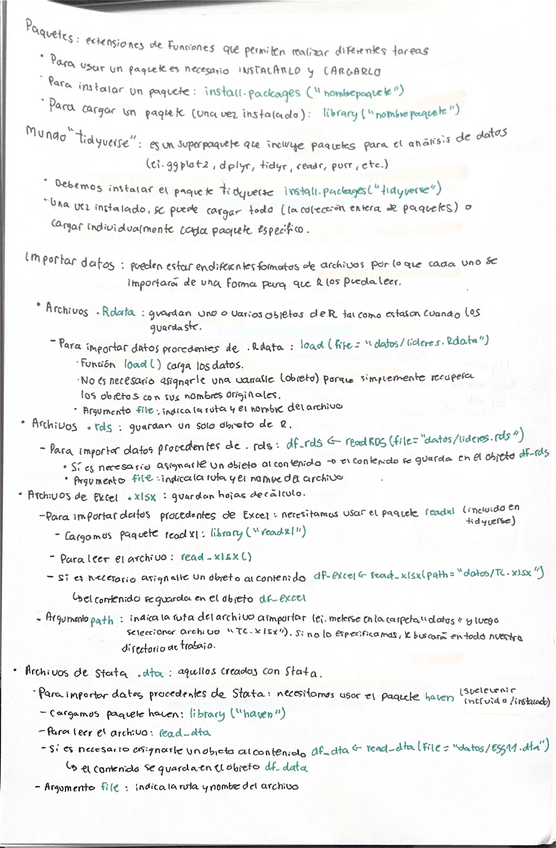 Paquetes: extensiones de funciones que permiten realizar diferentes tareas
• Para usar un paquete es necesario INSTALARLO y CARGARLO
• Para instalar un paquete: install.packages ("nombrepaquete")
• Para cargar un paquete (una vez instalado): library ("nombrepaquete")
Mundo "tidyverse": es un superpaquete que incluye paquetes para el análisis de datos
(ej. ggplot2, dplyr, tidyr, readr, purr, etc.)
• Debemos instalar el paquete tidyverse install.packages("tidyverse")
• Una vez instalado, se puede cargar todo (la colección entera de paquetes) o
cargar individualmente cada paquete específico.
Importar datos: pueden estar en diferentes formatos de archivos por lo que cada uno se
importará de una forma para que R los pueda leer.
• Archivos .Rdata: guardan uno o varios objetos de R tal como estaban cuando los
guardaste.
- Para importar datos procedentes de .Rdata: load (file = "datos/lideres.Rdata")
· Función load() carga los datos.
· No es necesario asignarle una variable (objeto) porque simplemente recupera
los objetos con sus nombres originales.
· Argumento file: indica la ruta y el nombre del archivo
• Archivos .rds: guardan un solo objeto de R.
- Para importar datos procedentes de .rds: df_rds ← readRDS (file="datos/lideres.rds")
• Sí es necesario asignarle un objeto al contenido → el contenido se guarda en el objeto df-rds
• Argumento file: indica la ruta y el nombre del archivo
• Archivos de Excel .xlsx: guardan hojas de cálculo.
- Para importar datos procedentes de Excel: necesitamos usar el paquete readxl (incluido en
tidyverse)
- Cargamos paquete readxl: library ("readxl")
- Para leer el archivo: read_xlsx()
- Sí es necesario asignarle un objeto al contenido df-excel ← read_xlsx(path="datos/TC.xlsx")
↳ el contenido se guarda en el objeto df_excel
- Argumento path: indica la ruta del archivo a importar (ej. meterse en la carpeta "datos" y luego
seleccionar archivo "TC.xlsx"). Si no lo especificamos, R buscará en todo nuestro
directorio de trabajo.
• Archivos de Stata .dta: aquellos creados con Stata.
· Para importar datos procedentes de Stata: necesitamos usar el paquete haven (suele venir
incluido/instalado)
- Cargamos paquete haven: library ("haven")
- Para leer el archivo: read_dta
- Sí es necesario asignarle un objeto al contenido df_dta ← read_dta (file = "datos/ESS11.dta")
↳ el contenido se guarda en el objeto df_data
- Argumento file: indica la ruta y nombre del archivo